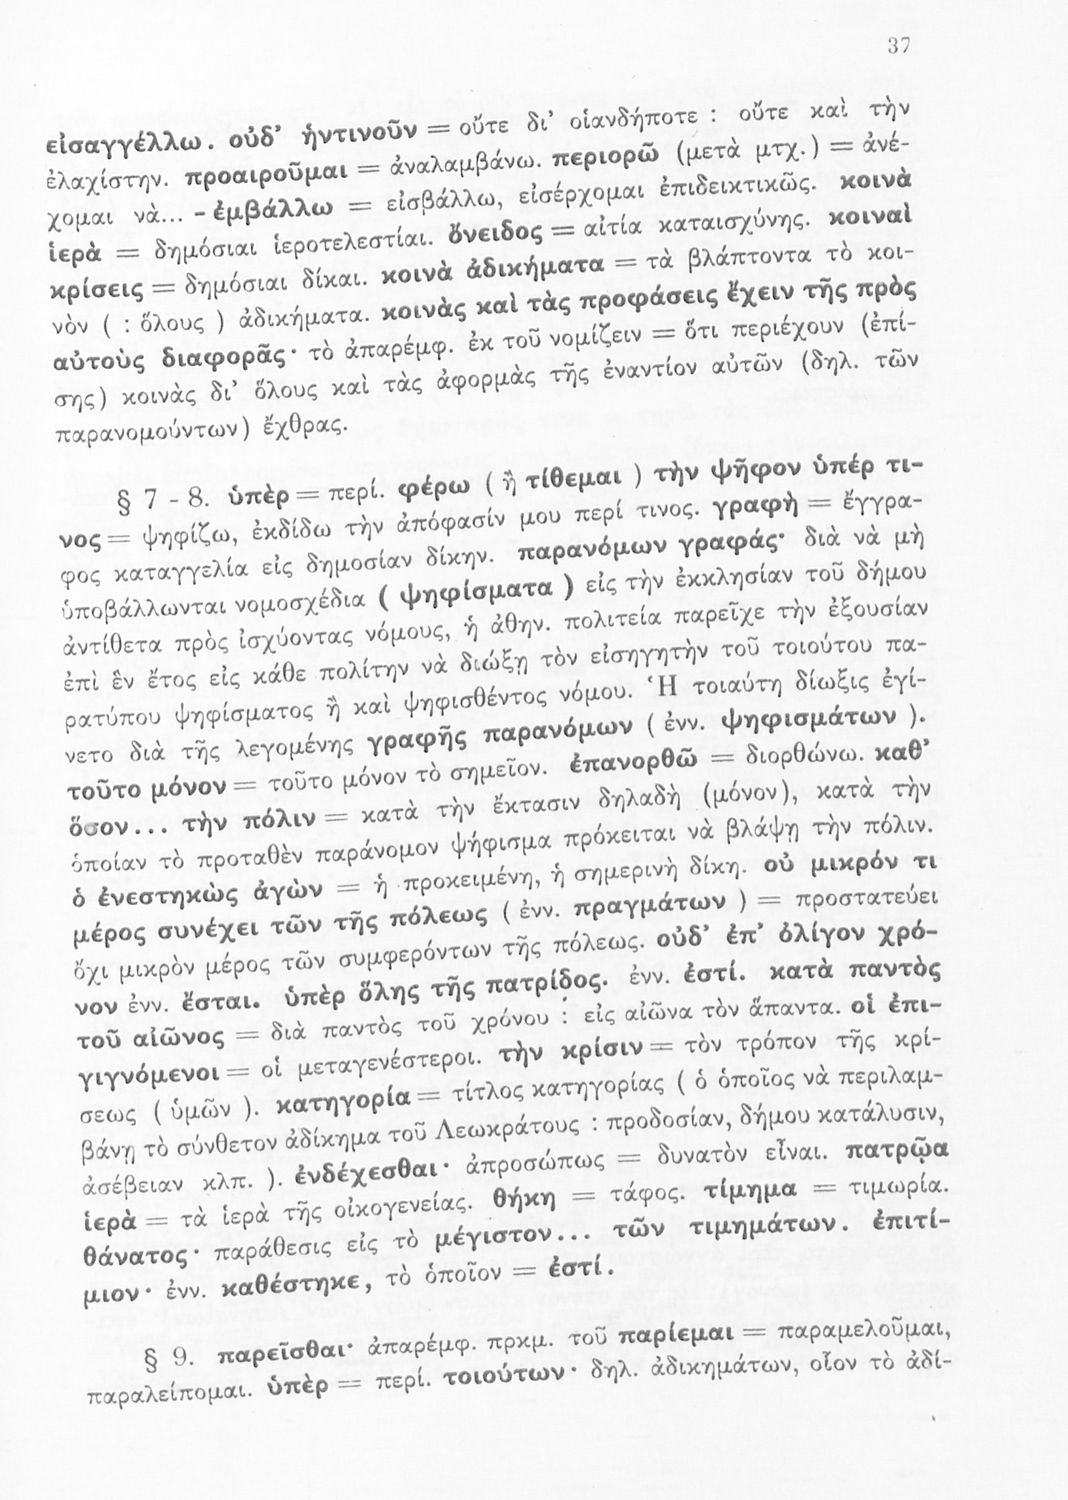 37
εἰσαγγέλλω. οὐδ’ ἡντινοῦν = οὔτε δι’ οἱανδήποτε : οὔτε καὶ τὴν
ἐλαχίστην. προαιροῦμαι = ἀναλαμβάνω. περιορῶ (μετὰ μτχ.) = ἀνέ-
χομαι νὰ... - ἐμβάλλω = εἰσβάλλω, εἰσέρχομαι ἐπιδεικτικῶς. κοινὰ
ἱερὰ = δημόσιαι ἱεροτελεστίαι. ὄνειδος = αἰτία καταισχύνης. κοιναὶ
κρίσεις = δημόσιαι δίκαι. κοινὰ ἀδικήματα = τὰ βλάπτοντα τὸ κοι-
νὸν ( : ὅλους ) ἀδικήματα. κοινὰς καὶ τὰς προφάσεις ἔχειν τῆς πρὸς
αὐτοὺς διαφορᾶς· τὸ ἀπαρέμφ. ἐκ τοῦ νομίζειν = ὅτι περιέχουν (ἐπί-
σης) κοινὰς δι’ ὅλους καὶ τὰς ἀφορμὰς τῆς ἐναντίον αὐτῶν (δηλ. τῶν
παρανομούντων) ἔχθρας.
§ 7 - 8. ὑπὲρ = περί. φέρω ( ἢ τίθεμαι ) τὴν ψῆφον ὑπέρ τι-
νος = ψηφίζω, ἐκδίδω τὴν ἀπόφασίν μου περί τινος. γραφὴ = ἔγγρα-
φος καταγγελία εἰς δημοσίαν δίκην. παρανόμων γραφάς· διὰ νὰ μὴ
ὑποβάλλωνται νομοσχέδια ( ψηφίσματα ) εἰς τὴν ἐκκλησίαν τοῦ δήμου
ἀντίθετα πρὸς ἰσχύοντας νόμους, ἡ ἀθην. πολιτεία παρεῖχε τὴν ἐξουσίαν
ἐπὶ ἓν ἔτος εἰς κάθε πολίτην νὰ διώξῃ τὸν εἰσηγητὴν τοῦ τοιούτου πα-
ρατύπου ψηφίσματος ἢ καὶ ψηφισθέντος νόμου. Ἡ τοιαύτη δίωξις ἐγί-
νετο διὰ τῆς λεγομένης γραφῆς παρανόμων ( ἐνν. ψηφισμάτων ).
τοῦτο μόνον = τοῦτο μόνον τὸ σημεῖον. ἐπανορθῶ = διορθώνω. καθ’
ὅσον... τὴν πόλιν = κατὰ τὴν ἔκτασιν δηλαδὴ (μόνον), κατὰ τὴν
ὁποίαν τὸ προταθὲν παράνομον ψήφισμα πρόκειται νὰ βλάψῃ τὴν πόλιν.
ὁ ἐνεστηκὼς ἀγὼν = ἡ προκειμένη, ἡ σημερινὴ δίκη. οὐ μικρόν τι
μέρος συνέχει τῶν τῆς πόλεως ( ἐνν. πραγμάτων ) = προστατεύει
ὄχι μικρὸν μέρος τῶν συμφερόντων τῆς πόλεως. οὐδ’ ἐπ’ ὀλίγον χρό-
νον ἐνν. ἔσται. ὑπὲρ ὅλης τῆς πατρίδος. ἐνν. ἐστί. κατὰ παντὸς
τοῦ αἰῶνος = διὰ παντὸς τοῦ χρόνου : εἰς αἰῶνα τὸν ἅπαντα. οἱ ἐπι-
γιγνόμενοι = οἱ μεταγενέστεροι. τὴν κρίσιν = τὸν τρόπον τῆς κρί-
σεως ( ὑμῶν ). κατηγορία = τίτλος κατηγορίας ( ὁ ὁποῖος νὰ περιλαμ-
βάνῃ τὸ σύνθετον ἀδίκημα τοῦ Λεωκράτους : προδοσίαν, δήμου κατάλυσιν,
ἀσέβειαν κλπ. ). ἐνδέχεσθαι· ἀπροσώπως = δυνατὸν εἶναι. πατρῷα
ἱερὰ = τὰ ἱερὰ τῆς οἰκογενείας. θήκη = τάφος. τίμημα = τιμωρία.
θάνατος· παράθεσις εἰς τὸ μέγιστον... τῶν τιμημάτων. ἐπιτί-
μιον· ἐνν. καθέστηκε, τὸ ὁποῖον = ἐστί.
§ 9. παρεῖσθαι· ἀπαρέμφ. πρκμ. τοῦ παρίεμαι = παραμελοῦμαι,
παραλείπομαι. ὑπὲρ = περί. τοιούτων· δηλ. ἀδικημάτων, οἷον τὸ ἀδί-